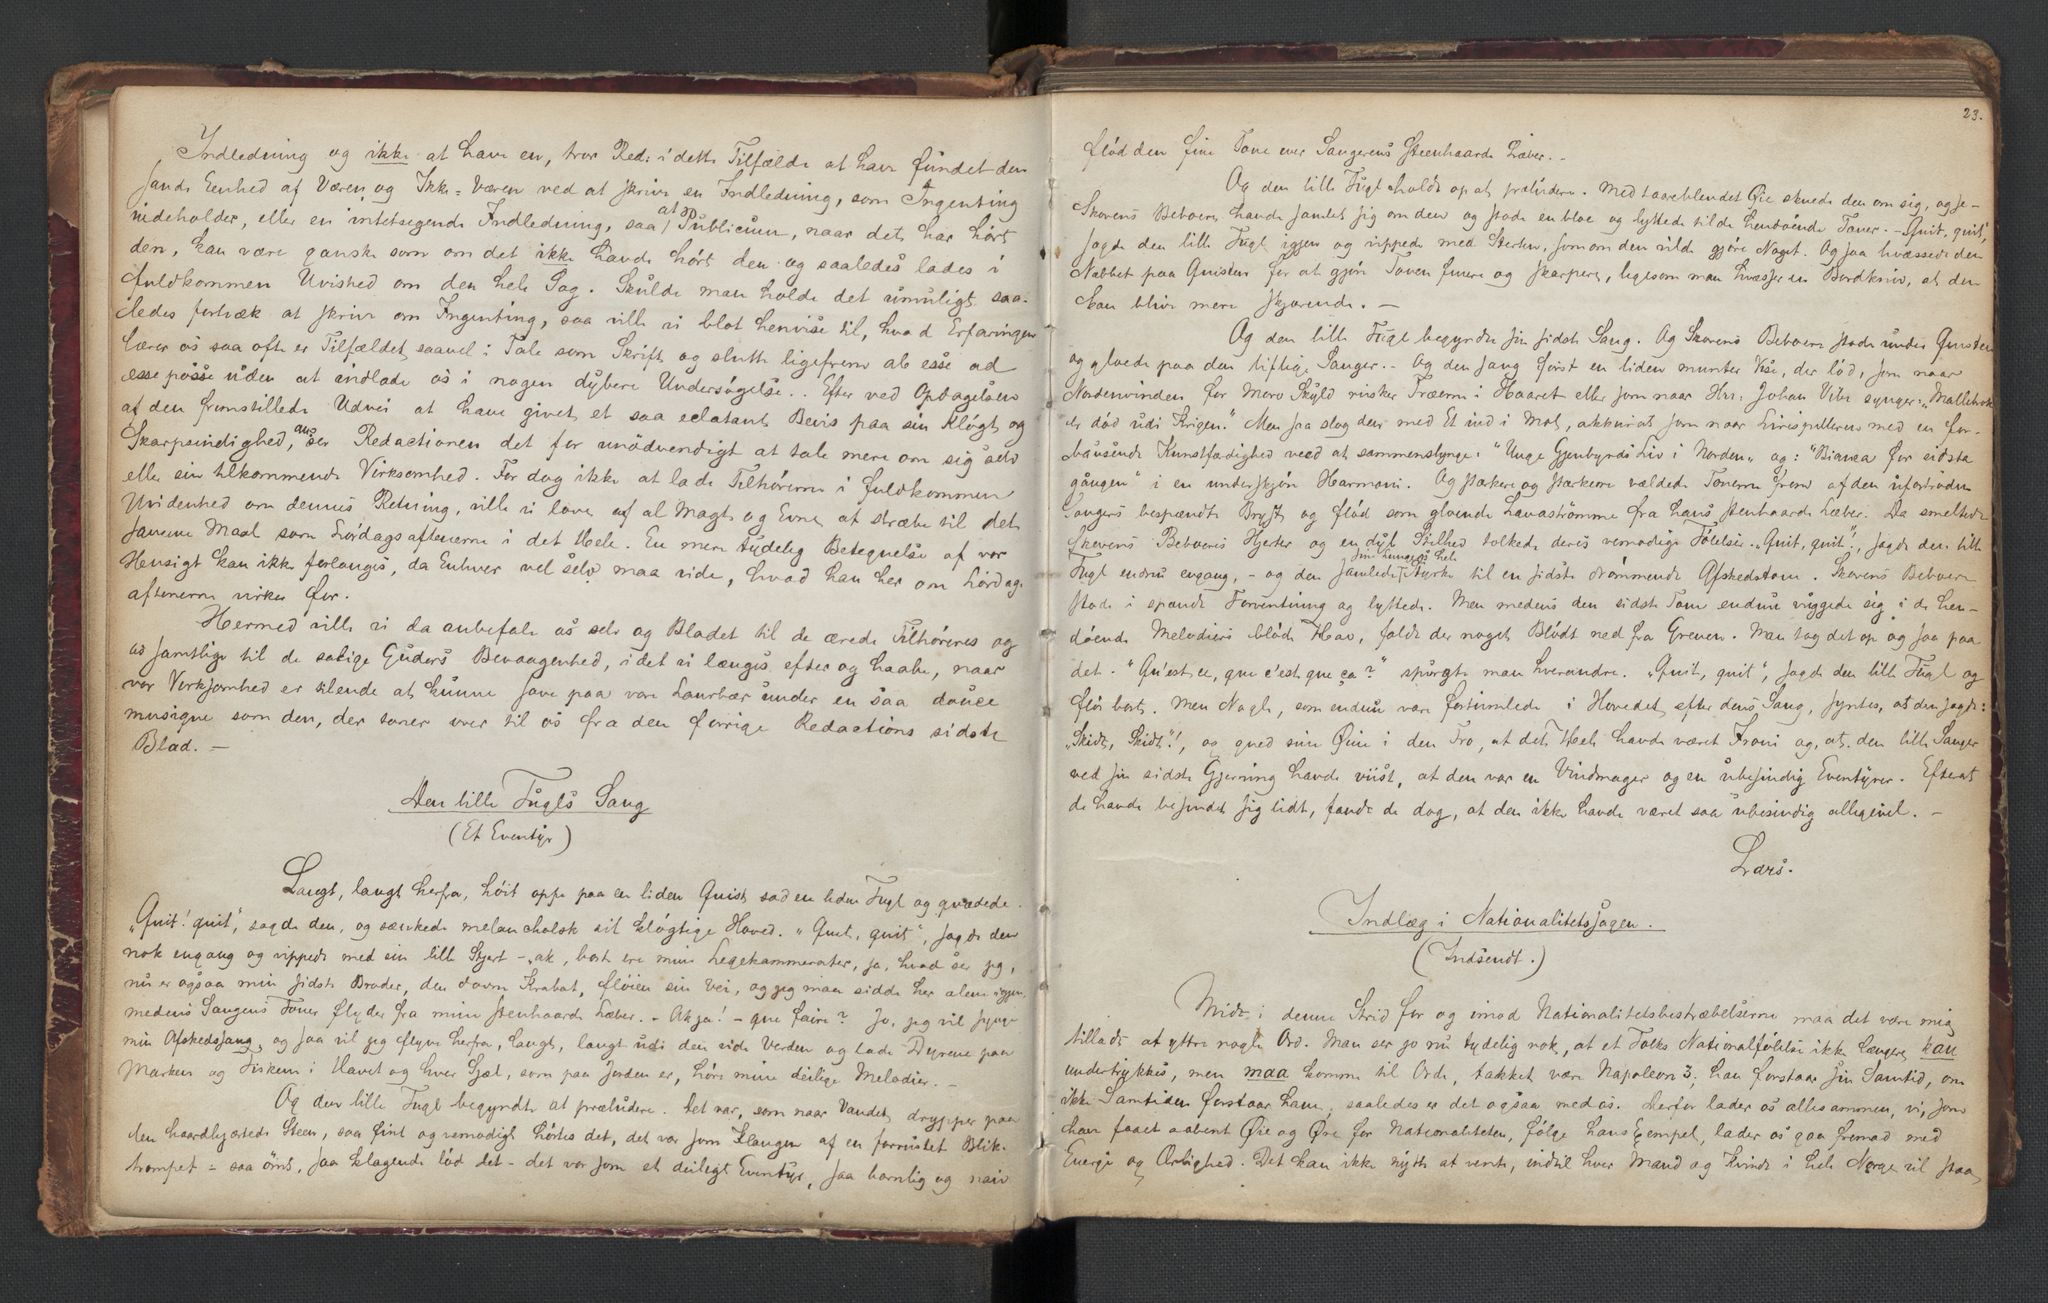 Indledning og ikke at have en, tror Red: i dette Tilfælde at have fundet den
sande Eenhed af Væren og Ikke-Væren ved at skrive en Indledning, som Ingenting
indeholder, eller en intetsigende Indledning, saa at Publicum, naar det har hørt
den, kan være ganske som om det ikke havde hørt den og saaledes lades i
fuldkommen Uvished om den hele Sag. Skulde man holde det umuligt saa-
ledes fortvæk at skrive om Ingenting, saa ville vi blot henvise til, hvad Erfaringen
lærer os saa ofte er Tilfældet saavel i Tale som Skrift, og slutte ligefrem ab esse ad
esse posse uden at indlade os i nogen dybere Undersøgelse. Efter ved Opdagelsen
af den fremstillede Udvei at have givet et saa eclatant Beviis paa sin Kløgt og
Skarpsindighed, anser Redactionen det for unødvendigt at tale mere om sig selv
eller sin tilkommende Virksomhed. For dog ikke at lade Tilhørerne i fuldkommen
Uvidenhed om dennes Retning, ville vi love af al Magt og Evne at stræbe til det
samme Maal som Lørdagsaftenerne i det Hele. En mere tydelig Betegnelse af vor
Hensigt kan ikke forlanges, da Enhver vel selv maa vide, hvad han her om Lørdags
aftenerne virker for.
Hermed ville vi da anbefale os selv og Bladet til de ærede Tilhøreres og
os samtlige til de salige Guders Bevaagenhed, idet vi længes efter og haabe, naar
vor Virksomhed er tilende at kunne sove paa vore Laurbær under en saa douce
musique som den, der toner over til os fra den forrige Redactions sidste
Blad. —
Den lille Fugls Sang
(Et Eventyr)
Langt, langt herfra, høit oppe paa en liden Quist sad en liden Fugl og qvædede.
"Quit! quit", sagde den, og sænkede melancholsk sit kløgtige Hoved. "Quit, quit", sagde den
nok engang og vippede med sin lille Stjert - "ak, bort ere mine Legekammerater, ja, hvad ser jeg,
nu er ogsaa min sidste Broder, den Krabat, fløien sin Vei, og jeg maa sidde her alene igjen,
medens Sangens Toner flyder fra mine steenhaarde Læber. - Ak ja! - que faire? Jo, jeg vil synge
min Afskedssang, og saa vil jeg flyve herfra, langt, langt udi den vide Verden og lade Dyrene paa
Marken og Fiskene i Havet og hver Sjæl, som paa Jorden er, høre mine deilige Melodier. -
Og den lille Fugl begyndte at præludere. Det var, som naar Vandet drypper paa
den haardhjertede Steen, saa fint og vemodigt hørtes det, det var som Klangen af en forrustet Blik-
trompet - saa ømt, saa klagende lød det - det var som et deiligt Eventyr, saa barnlig og naiv
23.
flød den fine Tone over Sangerens steenhaarde Læber. -
Og den lille Fugl holdt op at præludere. Med taareblendet Øie skuede den om sig, og se -
Skovens Beboere havde samlet sig om den og stode en bloc og lyttede til de hendøende Toner. - "Quit, quit",
sagde den lille Fugl igjen og vippede med Sterten, som om den vilde gjøre Noget. Og saa hvæssede den
Næbbet paa Quisten for at gjøre Tonen finere og skarpere, ligesom man hvæsser en Bordkniv, at den
kan blive mere skjærende. —
Og den lille Fugl begyndte sin sidste Sang. Og Skovens Beboere stode under Quisten
og gloede paa den liflige Sanger. - Og den sang først en liden munter Vise, der lød, som naar
Nordenvinden for Moro Skyld rusker Træerne i Haaret eller som naar Hr: Johan Vibe synger: "Mallebrok
er død udi Krigen." Men saa slog den med Et ind i Mol, akkurat som naar Lirespilleren med en for-
bausende Kunstfærdighed veed at sammenslynge: "Unge Gjenbyrds Liv i Norden" og: "Bianca för sidsta
gången" i en underskjøn Harmoni. Og stærkere og stærkere vældede Tonerne frem af den ufortrødne
Sangers bespændte Bryst og flød som gloende Lavastrømme fra hans steenhaarde Læber. Da smeltede
Skovens Beboeres Hjerter og en dyb Stilhed tolkede deres vemodige Følelser. "Quit, quit!", sagde den lille
Fugl endnu engang, - og den samlede sin Lunges hele Styrke til en sidste drømmende Afskedstone. Skovens Beboere
stode i spændt Forventning og lyttede. Men medens den sidste Tone endnu vuggede sig i de hen-
døende Melodiers bløde Hav, faldt der noget Blødt ned fra Grenen. Man tog det op og saa paa
det. "Qu'est, ce, que c'est que ça?" spurgte man hverandre. "Quit, quit", sagde den lille Fugl og
fløi bort. Men Nogle, som endnu vare fortumlede i Hovedet efter dens Sang, syntes, at den sagde:
"Skidt, Skidt"!, og gned sine Øine i den Tro, at det Hele havde været Ironi og, at den lille Sanger
ved sin sidste Gjerning havde viist, at den var en Vindmager og en ubesindig Eventyrer. Efterat
de havde besindet sig lidt, fandt de dog, at den ikke havde været saa ubesindig alligevel. -
Lars.
Indlæg i Nationalitetssagen.
(Indsendt.)
Midt i denne Strid for og imod Nationalitetsbestræbelserne maa det være mig
tilladt at yttre nogle Ord. Man ser jo nu tydelig nok, at et Folks Nationalfølelse ikke længere kan
undertrykkes, men maa komme til Orde, takket være Napoleon 3; han forstaar sin Samtid, om
ikke Samtiden forstaar ham; saaledes er det ogsaa med os. Derfor lader os allesammen, vi, som
har faaet aabent Øie og Øre for Nationaliteten, følge hans Exempel, lader os gaa fremad med
Energi og Ærlighed. Det kan ikke nytte at vente, indtil hver Mand og Kvinde i hele Norge vil staa